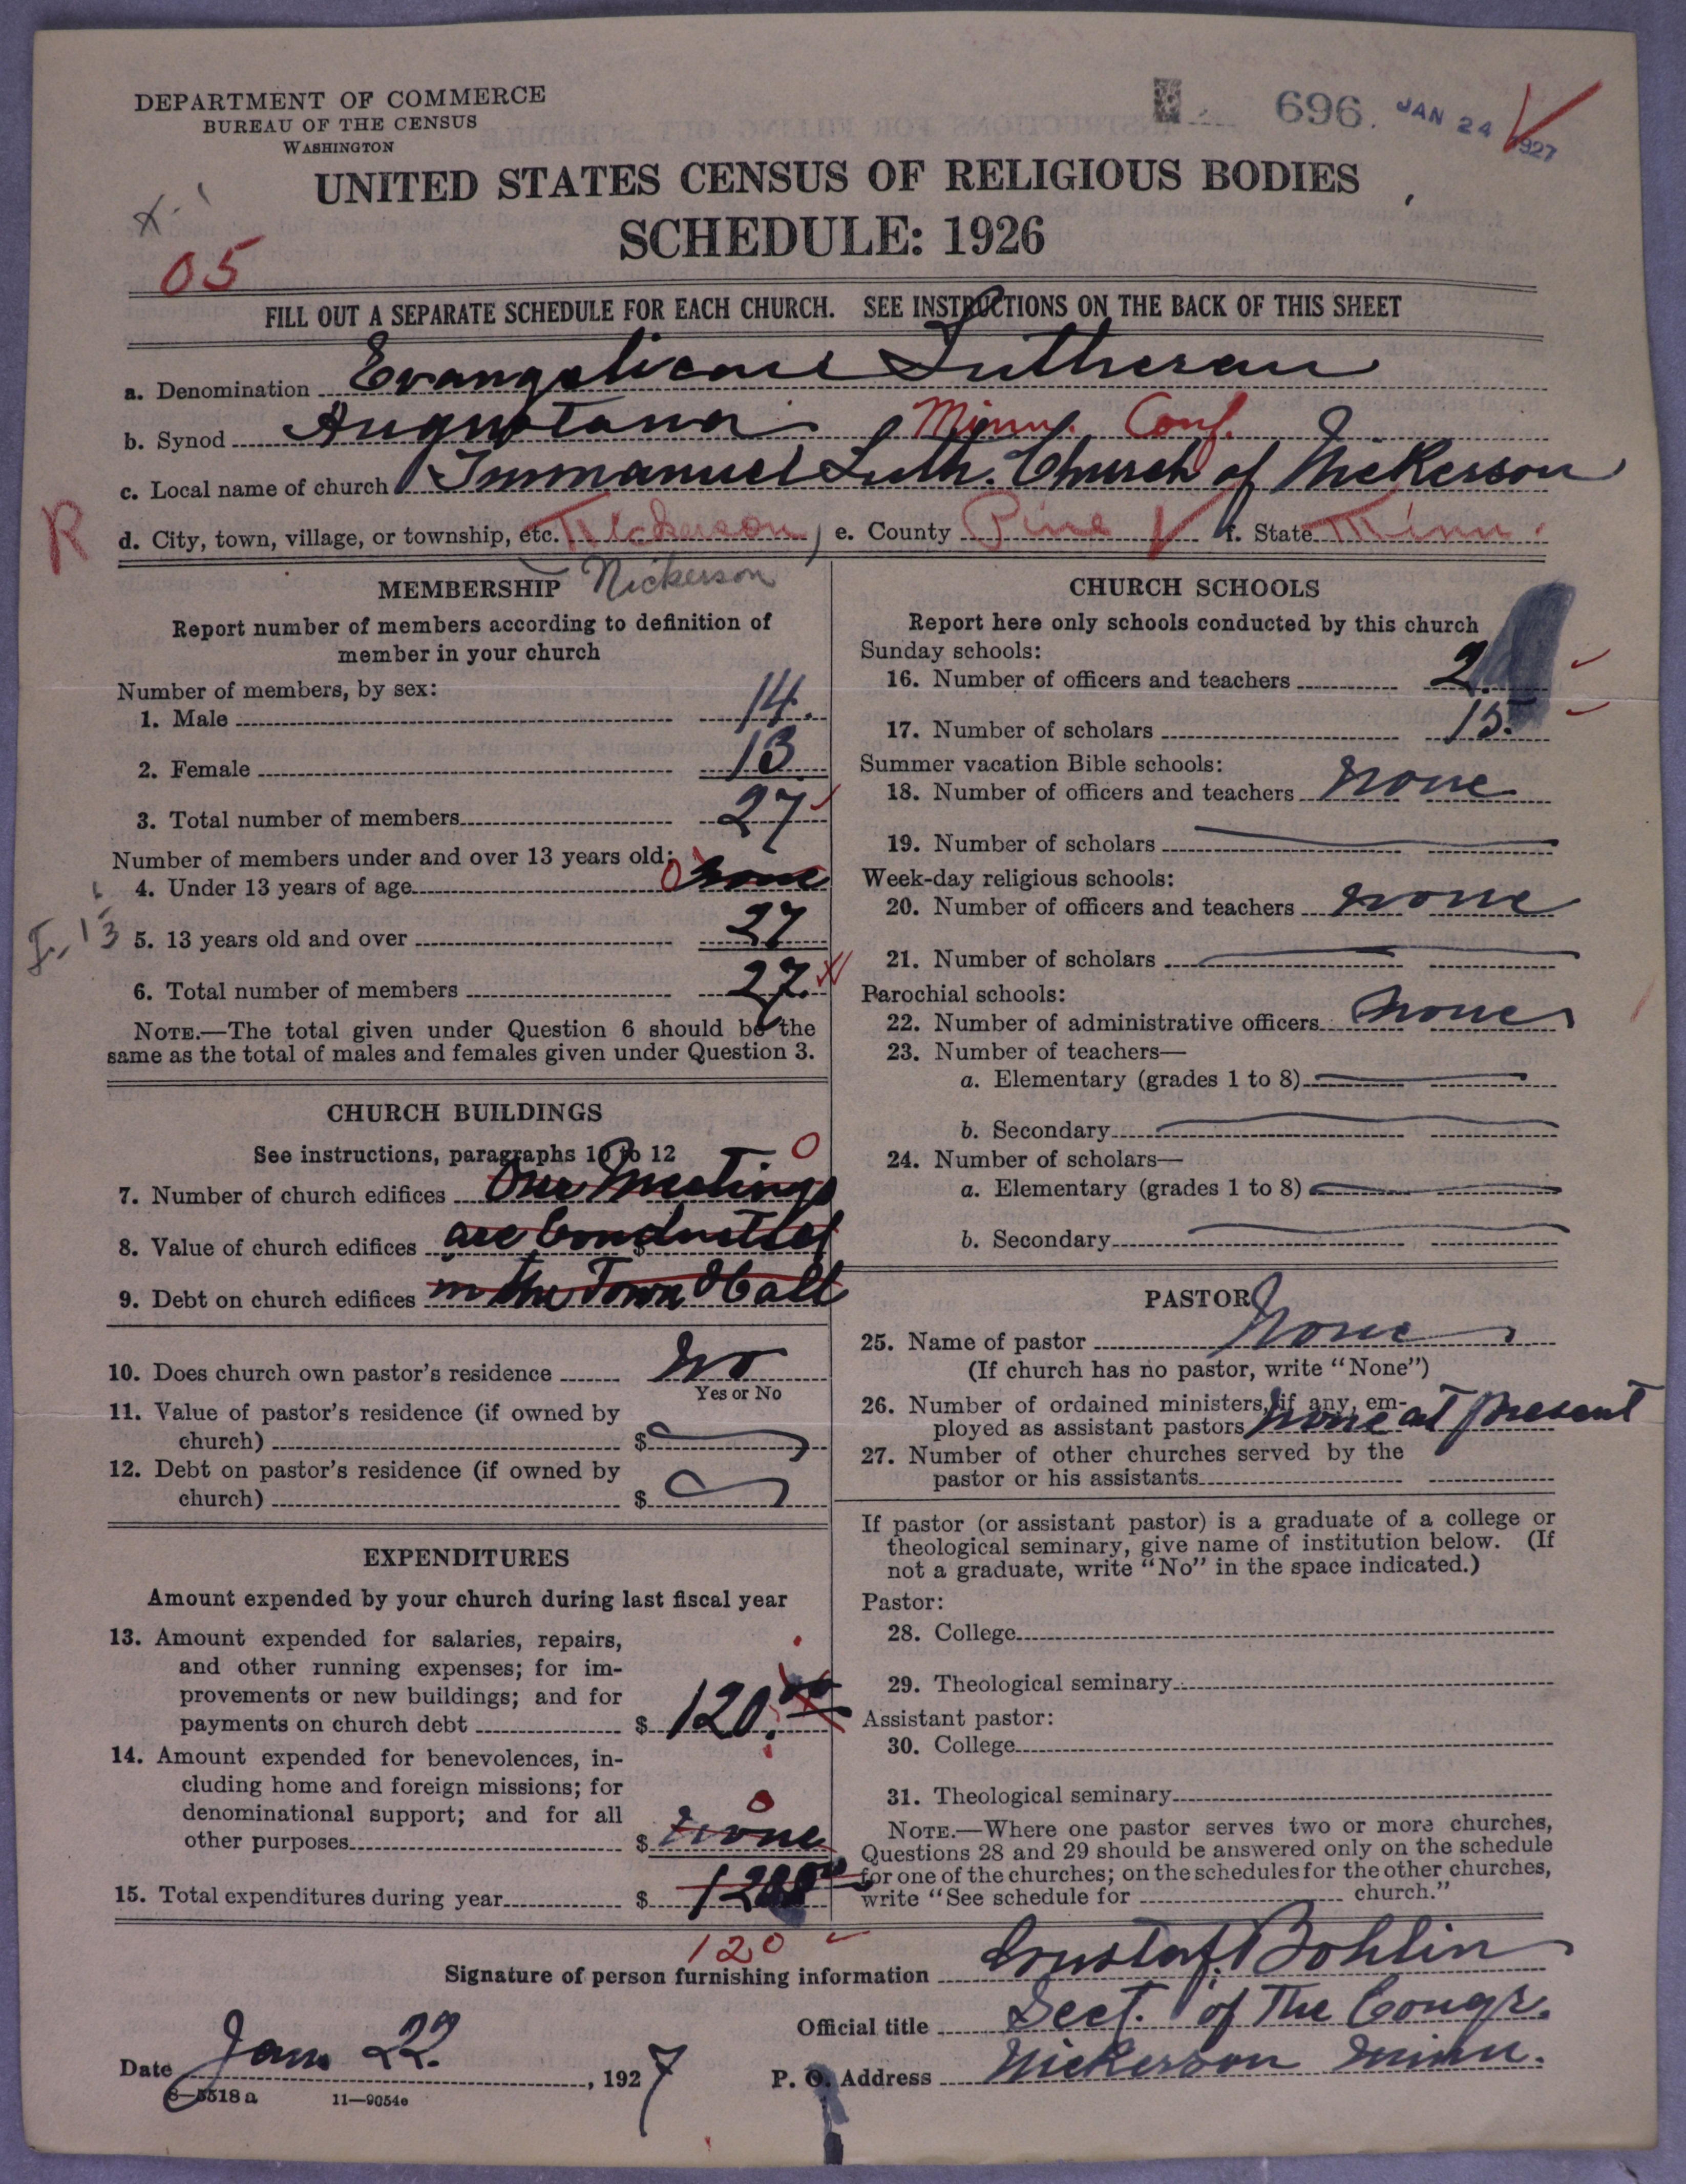 DEPARTMENT OF COMMERCE
BUREAU OF THE CENSUS
WASHINGTON
696. JAN 24 1927
UNITED STATES CENSUS OF RELIGIOUS BODIES
SCHEDULE: 1926
05
FILL OUT A SEPARATE SCHEDULE FOR EACH CHURCH. SEE INSTRUCTIONS ON THE BACK OF THIS SHEET
a. Denomination Evangelical Lutheran
b. Synod Augustana Minn. Conf.
c. Local name of church Immanuel Luth. Church of Nickerson
R d. City, town, village, or township, etc. Nickerson e. County Pine f. State Minn.
Nickerson
MEMBERSHIP
Report number of members according to definition of
member in your church
Number of members, by sex:
1. Male 14.
2. Female 13
3. Total number of members 27
Number of members under and over 13 years old:
4. Under 13 years of age 0 none
5. 13 years old and over 27
6. Total number of members 27.
NOTE.—The total given under Question 6 should be the
same as the total of males and females given under Question 3.
CHURCH BUILDINGS
See instructions, paragraphs 10 to 12 0
7. Number of church edifices Our Meetings
8. Value of church edifices are Conducted
9. Debt on church edifices in the Town Hall
10. Does church own pastor's residence No
Yes or No
11. Value of pastor's residence (if owned by
church) $
12. Debt on pastor's residence (if owned by
church) $
EXPENDITURES
Amount expended by your church during last fiscal year
13. Amount expended for salaries, repairs,
and other running expenses; for im-
provements or new buildings; and for
payments on church debt $ 120.00
14. Amount expended for benevolences, in-
cluding home and foreign missions; for
denominational support; and for all 0
other purposes $ none
15. Total expenditures during year $ 120.00
120
CHURCH SCHOOLS
Report here only schools conducted by this church
Sunday schools:
16. Number of officers and teachers 2.
17. Number of scholars 15.
Summer vacation Bible schools:
18. Number of officers and teachers none
19. Number of scholars
Week-day religious schools:
20. Number of officers and teachers none
21. Number of scholars
Parochial schools:
22. Number of administrative officers none
23. Number of teachers—
a. Elementary (grades 1 to 8)
b. Secondary
24. Number of scholars—
a. Elementary (grades 1 to 8)
b. Secondary
PASTOR
25. Name of pastor None
(If church has no pastor, write "None")
26. Number of ordained ministers, if any, em-
ployed as assistant pastors None at present
27. Number of other churches served by the
pastor or his assistants
If pastor (or assistant pastor) is a graduate of a college or
theological seminary, give name of institution below. (If
not a graduate, write "No" in the space indicated.)
Pastor:
28. College
29. Theological seminary
Assistant pastor:
30. College
31. Theological seminary
NOTE.—Where one pastor serves two or more churches,
Questions 28 and 29 should be answered only on the schedule
for one of the churches; on the schedules for the other churches,
write "See schedule for church."
Signature of person furnishing information Gustaf Bohlin
Official title Sect. of The Congr.
Date Jan. 22. , 1927 P. O. Address Nickerson Minn.
8—5518 a 11—9054e